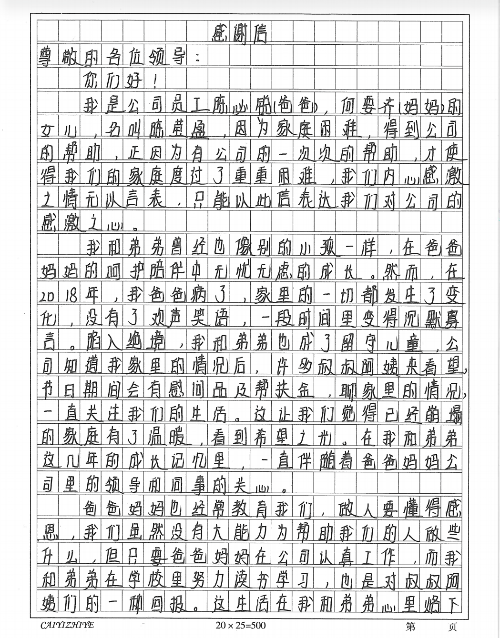 感谢信
尊敬的各位领导：
你们好！
我是公司员工陈心脱(爸爸)，何要齐(妈妈)的
女儿，名叫陈莫盈，因为家庭困难，得到公司
的帮助，正因为有公司的一次次的帮助，才使
得我们的家庭度过了重重困难，我们内心感激
之情无以言表，只能以此信表达我们对公司的
感激之心。
我和弟弟曾经也像别的小孩一样，在爸爸
妈妈的呵护陪伴中无忧无虑的成长。然而，在
2018年，我爸爸病了，家里的一切都发生了变
化，没有了欢声笑语，一段时间里变得沉默寡
言。陷入绝境，我和弟弟也成了留守儿童，公
司知道我家里的情况后，许多叔叔阿姨来看望，
节日期间会有慰问品及帮扶金，聊家里的情况，
一直关注我们的生活。这让我们觉得已经崩塌
的家庭有了温暖，看到希望之光。在我和弟弟
这几年的成长记忆里，一直伴随着爸爸妈妈公
司里的领导和同事的关心。
爸爸妈妈也经常教育我们，做人要懂得感
恩，我们虽然没有大能力为帮助我们的人做些
什么，但只要爸爸妈妈在公司认真工作，而我
和弟弟在学校里努力读书学习，也是对叔叔阿
姨们的一种回报。这生活在我和弟弟心里烙下
CAIYIZHIYE 20×25=500 第 页